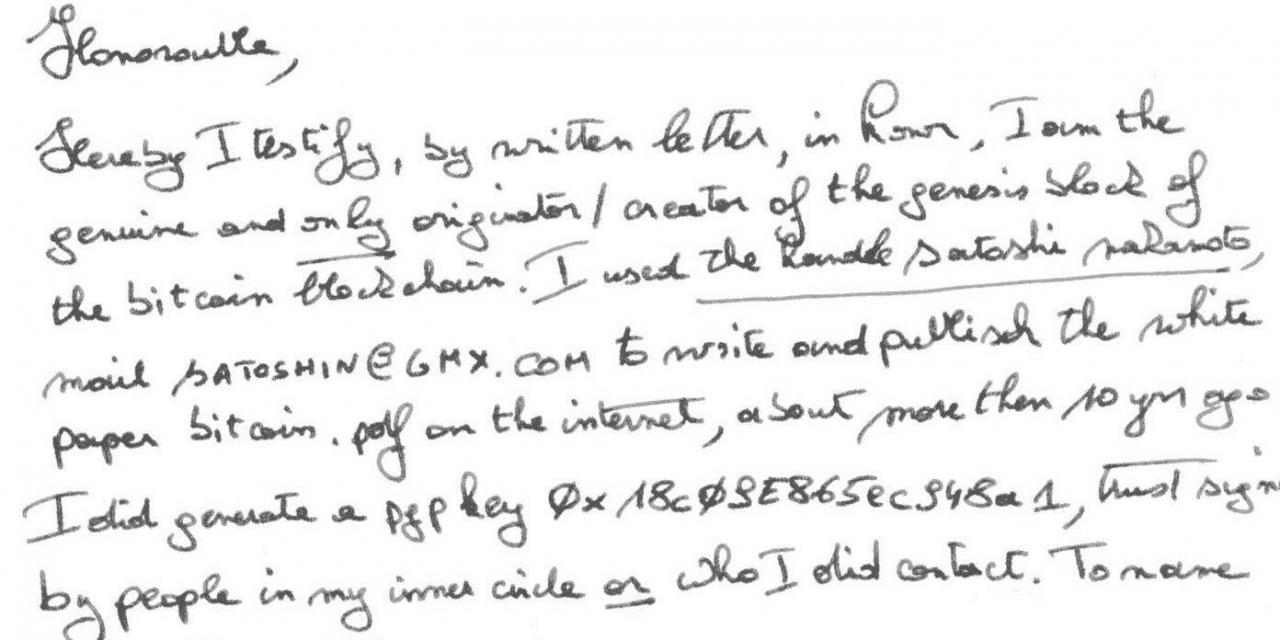 Honorable,
Hereby I testify, by written letter, in honor, I am the
genuine and only originator / creator of the genesis block of
the bitcoin blockchain. I used the handle satoshi nakamoto,
mail SATOSHIN@GMX.COM to write and publisch the white
paper bitcoin.pdf on the internet, about more then 10 yrs ago
I did generate a pgp key 0x18c09E865ec948a1, trust sign
by people in my inner circle or who I did contact. To name